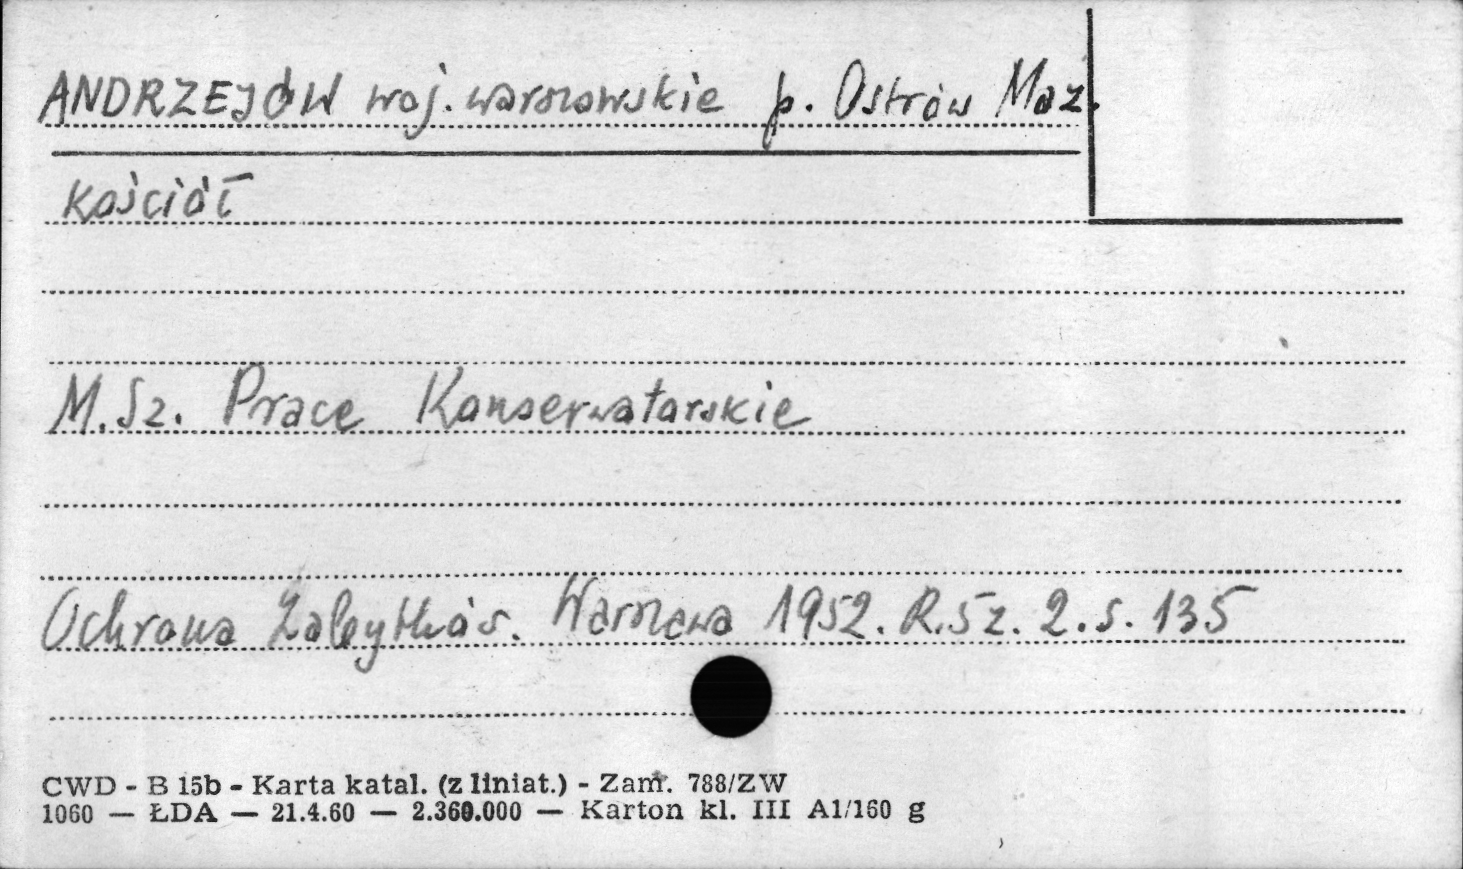 ANDRZEJÓW woj. warszawskie p. Ostrów Maz.
Kościół
M. Sz. Prace Konserwatorskie
Ochrona Zabytków. Warszawa 1952. R. 5 z. 2. s. 135
CWD - B 15b - Karta katal. (z liniat.) - Zam. 788/ZW
1060 — ŁDA — 21.4.60 — 2.360.000 — Karton kl. III A1/160 g